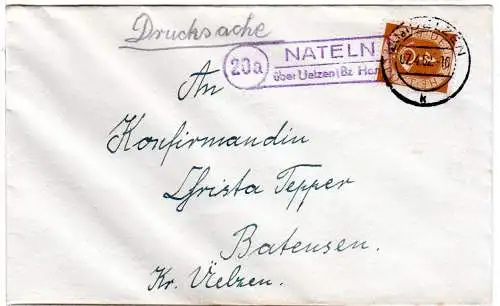 Drucksache
20a
NATELN
über Uelzen (Bz Han
UELZEN
02.4.52.-10
k
An
Konfirmandin
Christa Tepper
Batensen.
Kr. Uelzen.